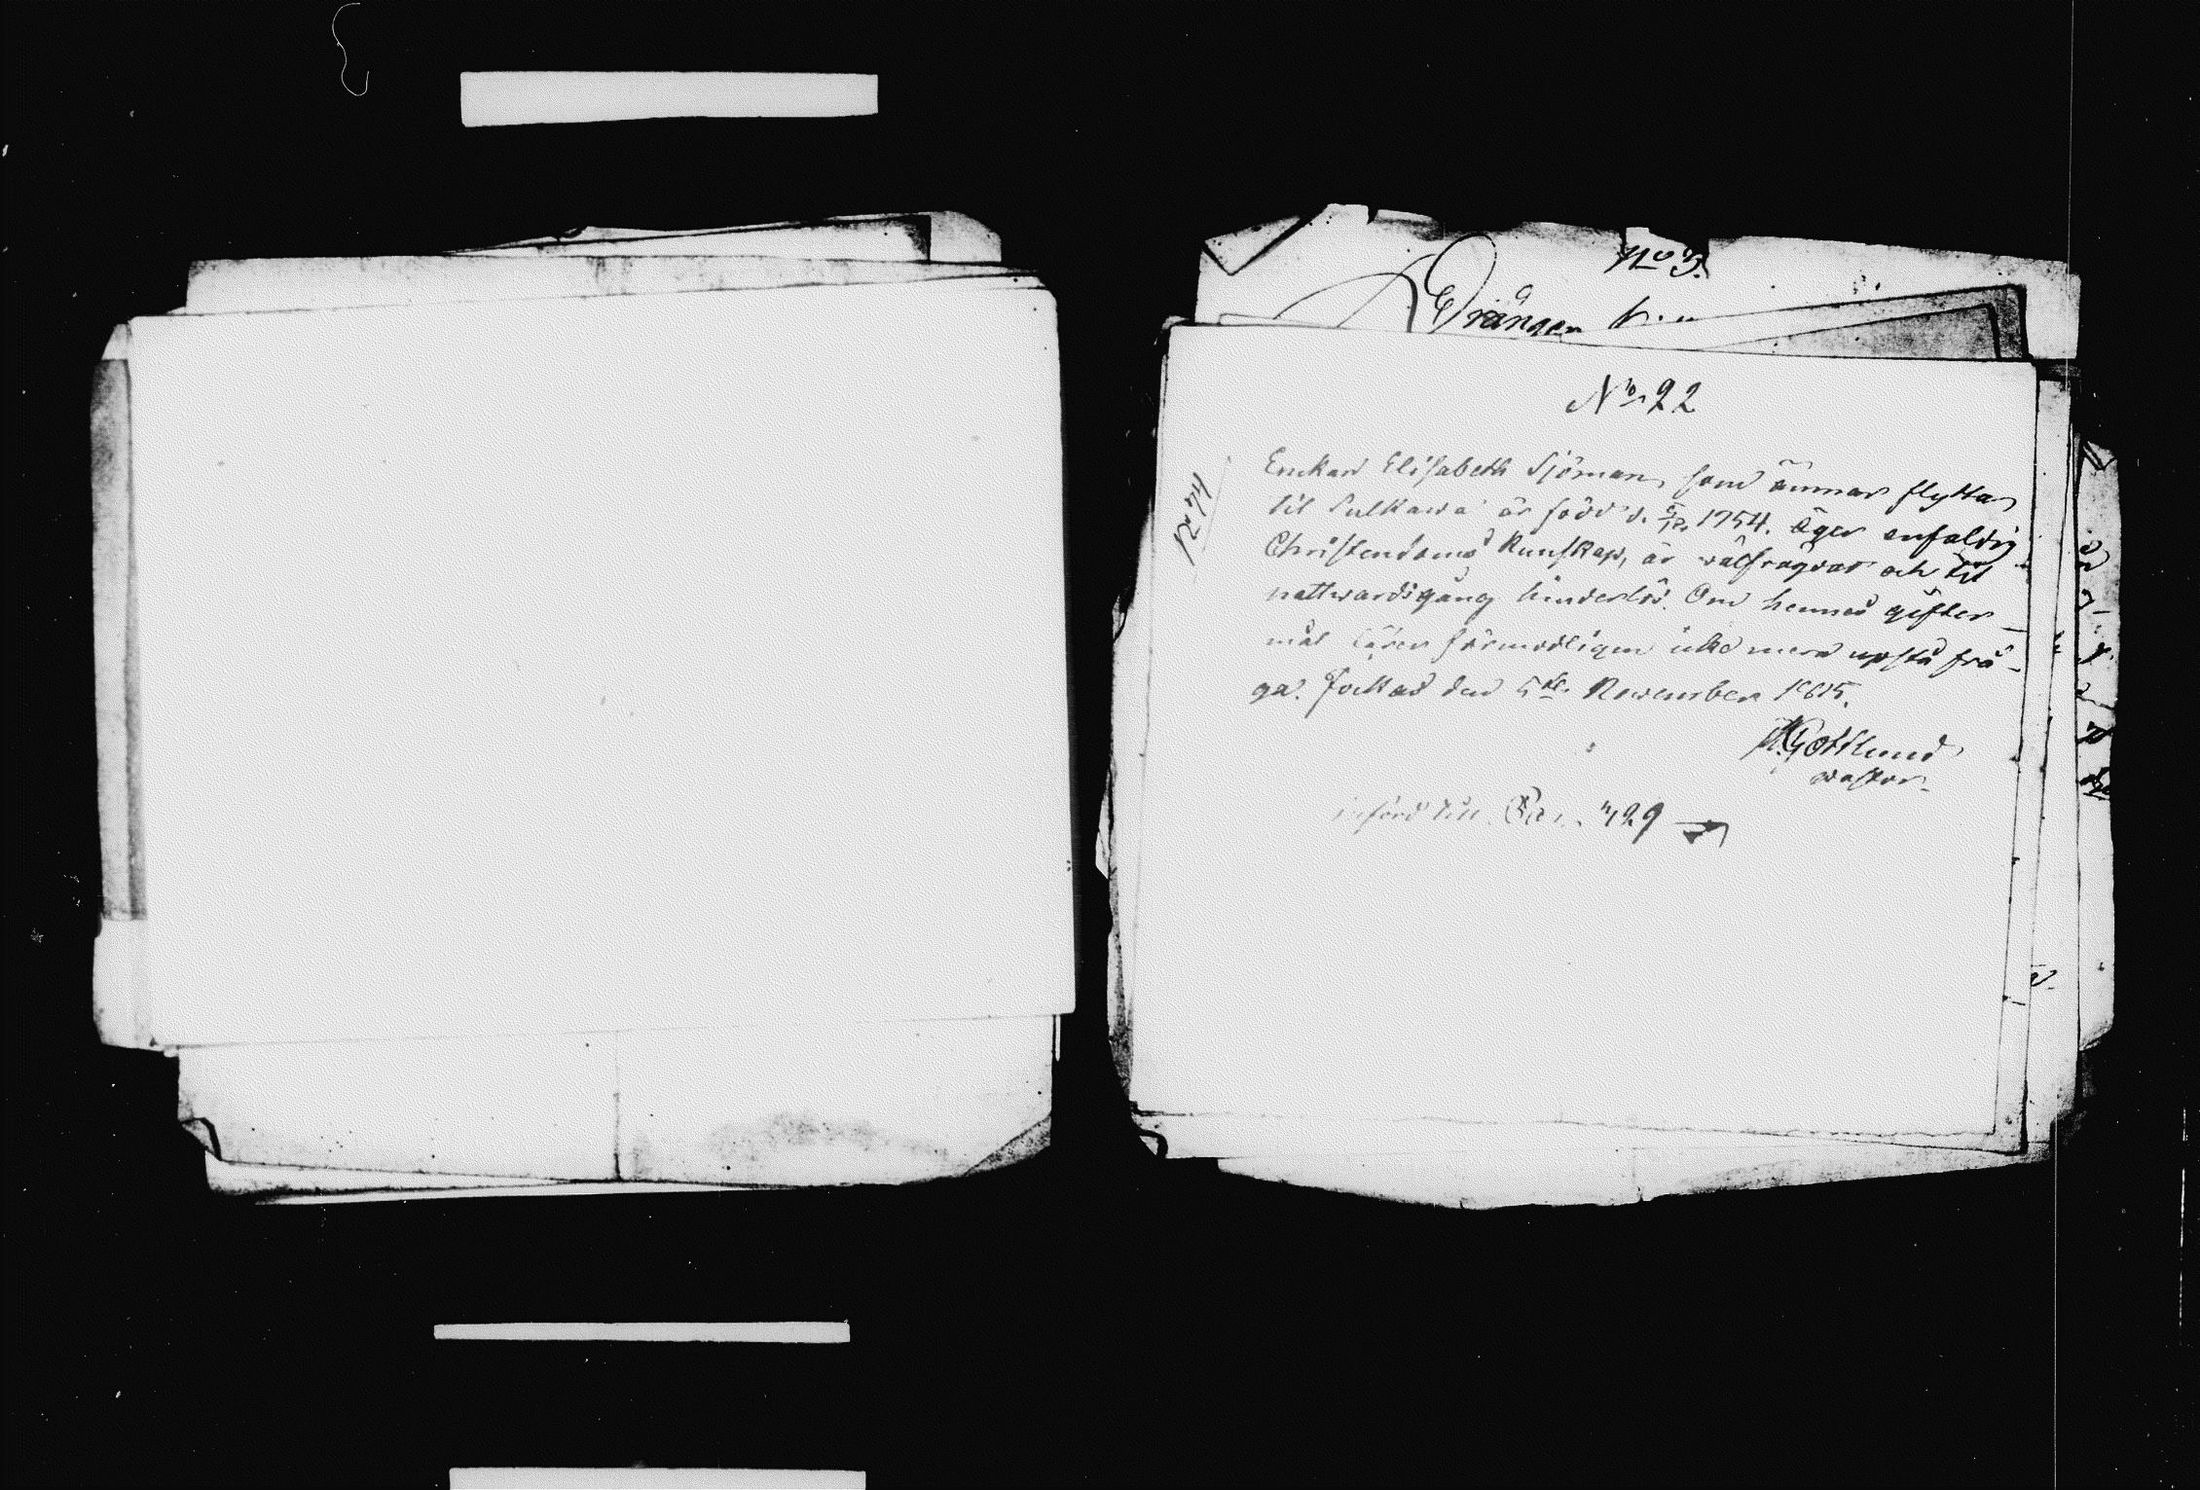 No 3.
Drängen
No 22
Enckan Elisabeth Sjöman, som ämnar flytta
til Sulkawa är född d. 1754. Äger enfaldig
Christendoms Kunskap, är wälfrägdad och til
nattwardsgång hinderlös. Om hennes gifter-
mål lärer förmodligen icke mera upstå frå-
ga. Jockas den 5te November 1815.
Gottlund
Pastor.
införd 429